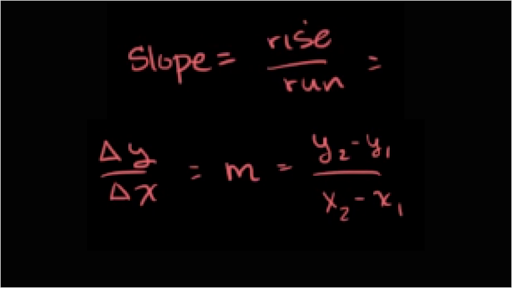 Slope = rise/run =
Δy/Δx = m = y₂-y₁/x₂-x₁